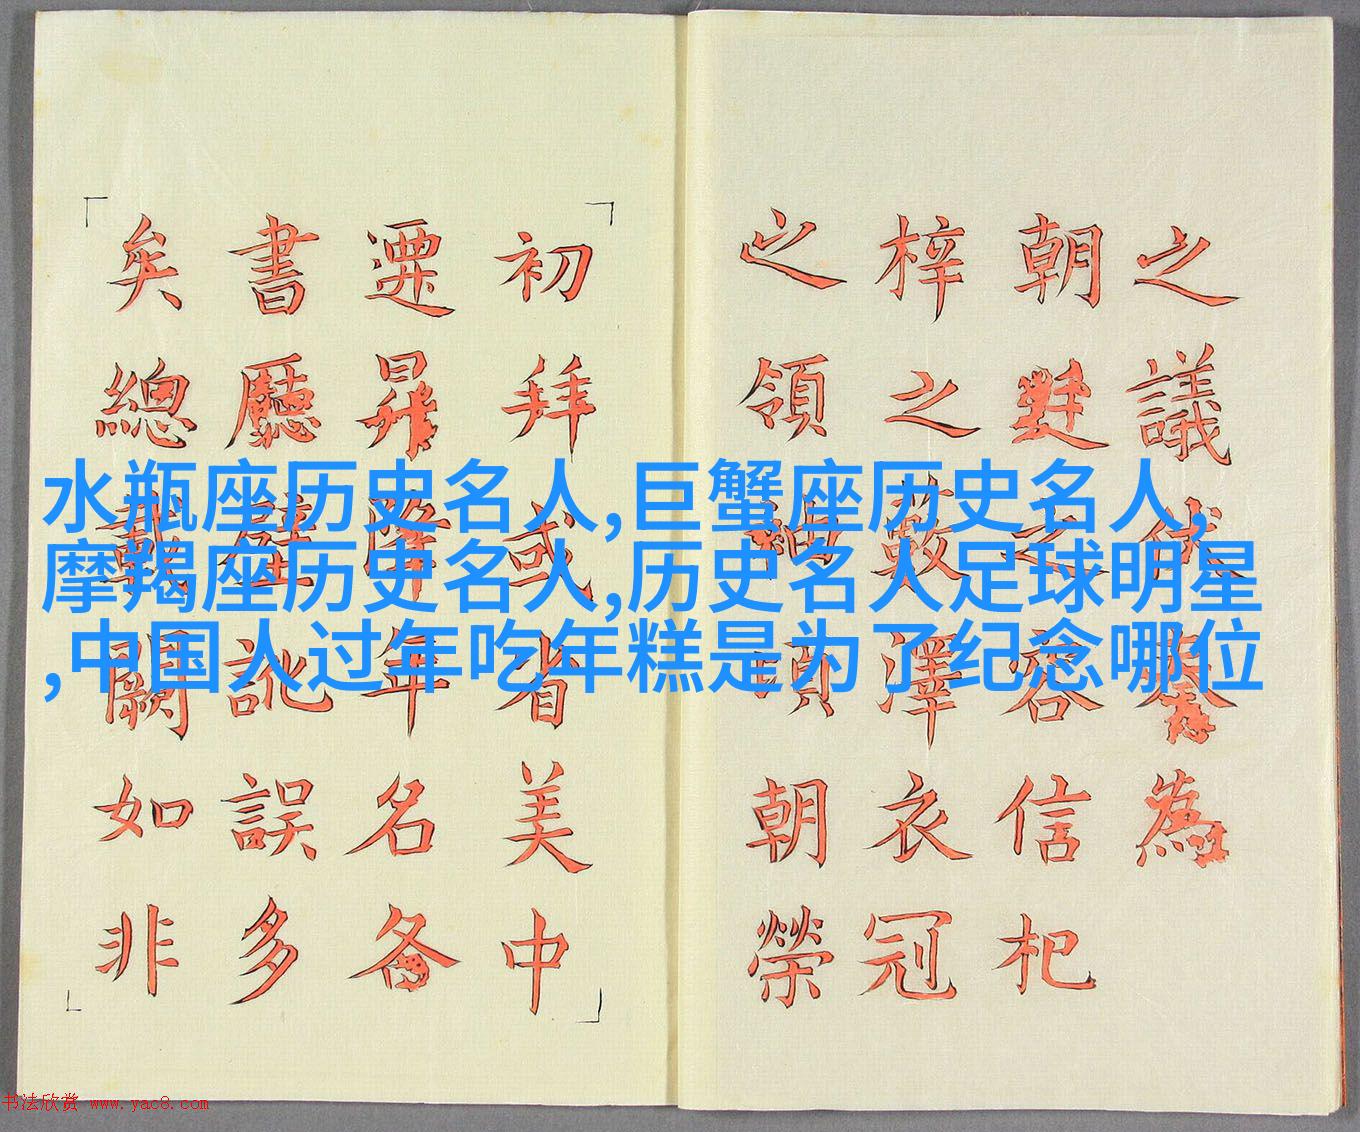 水瓶座历史名人,巨蟹座历史名人,
摩羯座历史名人,历史名人足球明星
,中国人过年吃年糕是为了纪念哪位
之議伏為
朝之容信杞
梓之藪澤衣冠
之領袖頃朝榮
初拜或省美中
遷昇降年名
書廳壁訛誤多
矣總載闕如非
书法欣赏 www.yac8.com